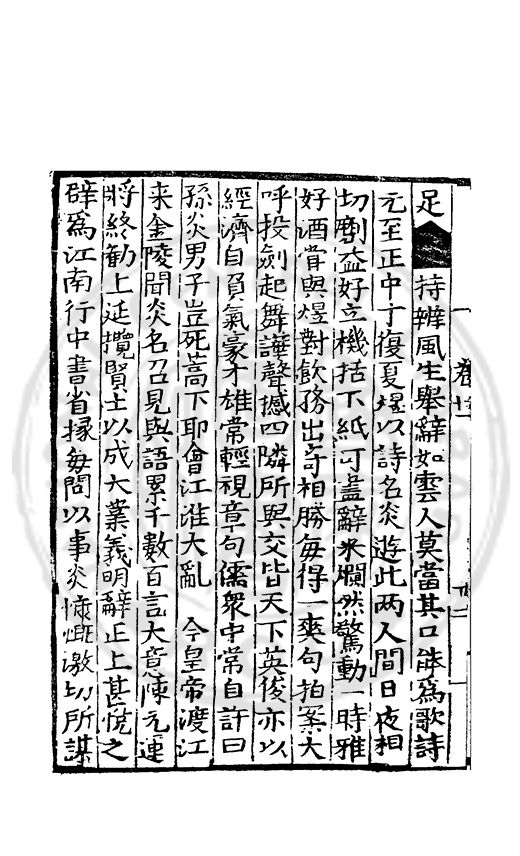 足 持辨風生舉辭如雲人莫當其口能爲歌詩
元至正中丁復夏煜以詩名炎遊此两人間日夜相
切劘益好立機括下紙可盡辭米爛然驚動一時雅
好酒甞與煜對飲務出奇相勝每得一爽句拍案大
呼投劍起舞譁聲撼四隣所與交皆天下英俊亦以
經濟自負氣豪才雄常輕視章句儒衆中常自許曰
孫炎男子豈死蒿下耶會江淮大亂 今皇帝渡江
来金陵聞炎名召見與語累千數百言大意陳元運
將終勸上延攬賢士以成大業義明辭正上甚悅之
辟爲江南行中書省掾每問以事炎慷慨激切所謀